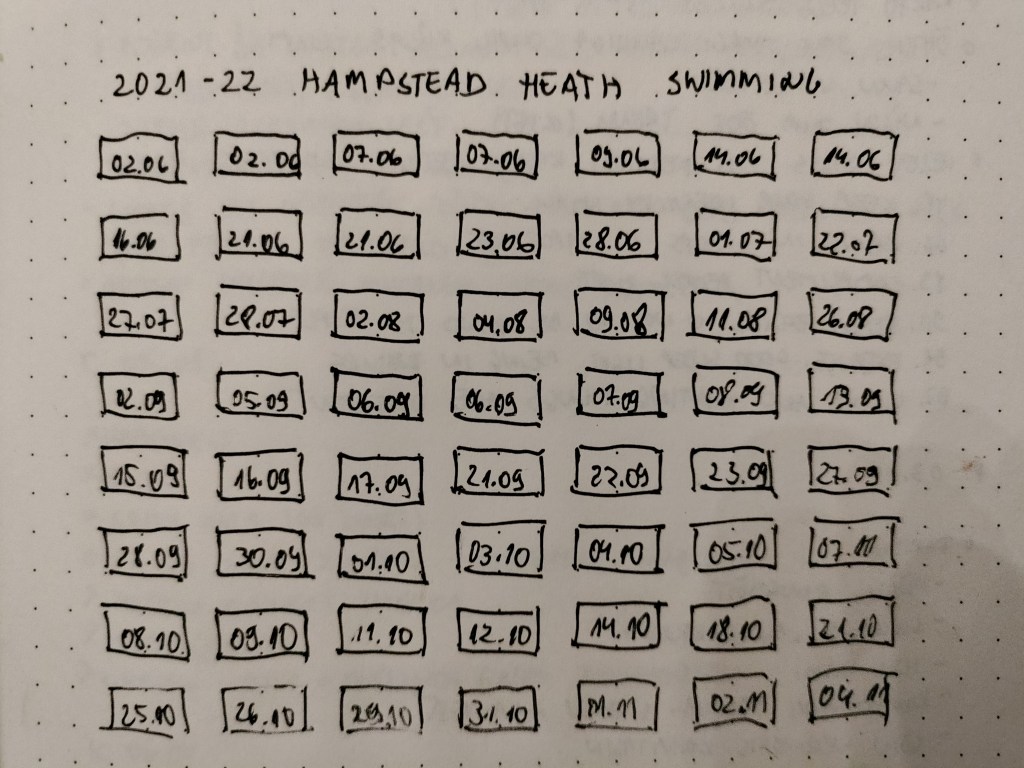 2021-22 HAMPSTEAD HEATH SWIMMING
02.06 02.06 07.06 07.06 09.06 14.06 14.06
16.06 21.06 21.06 23.06 28.06 01.07 22.07
27.07 28.07 02.08 04.08 09.08 11.08 26.08
02.09 05.09 06.09 06.09 07.09 08.09 13.09
15.09 16.09 17.09 21.09 22.09 23.09 27.09
28.09 30.09 01.10 03.10 04.10 05.10 07.10
08.10 09.10 11.10 12.10 14.10 18.10 21.10
25.10 26.10 29.10 31.10 01.11 02.11 04.11